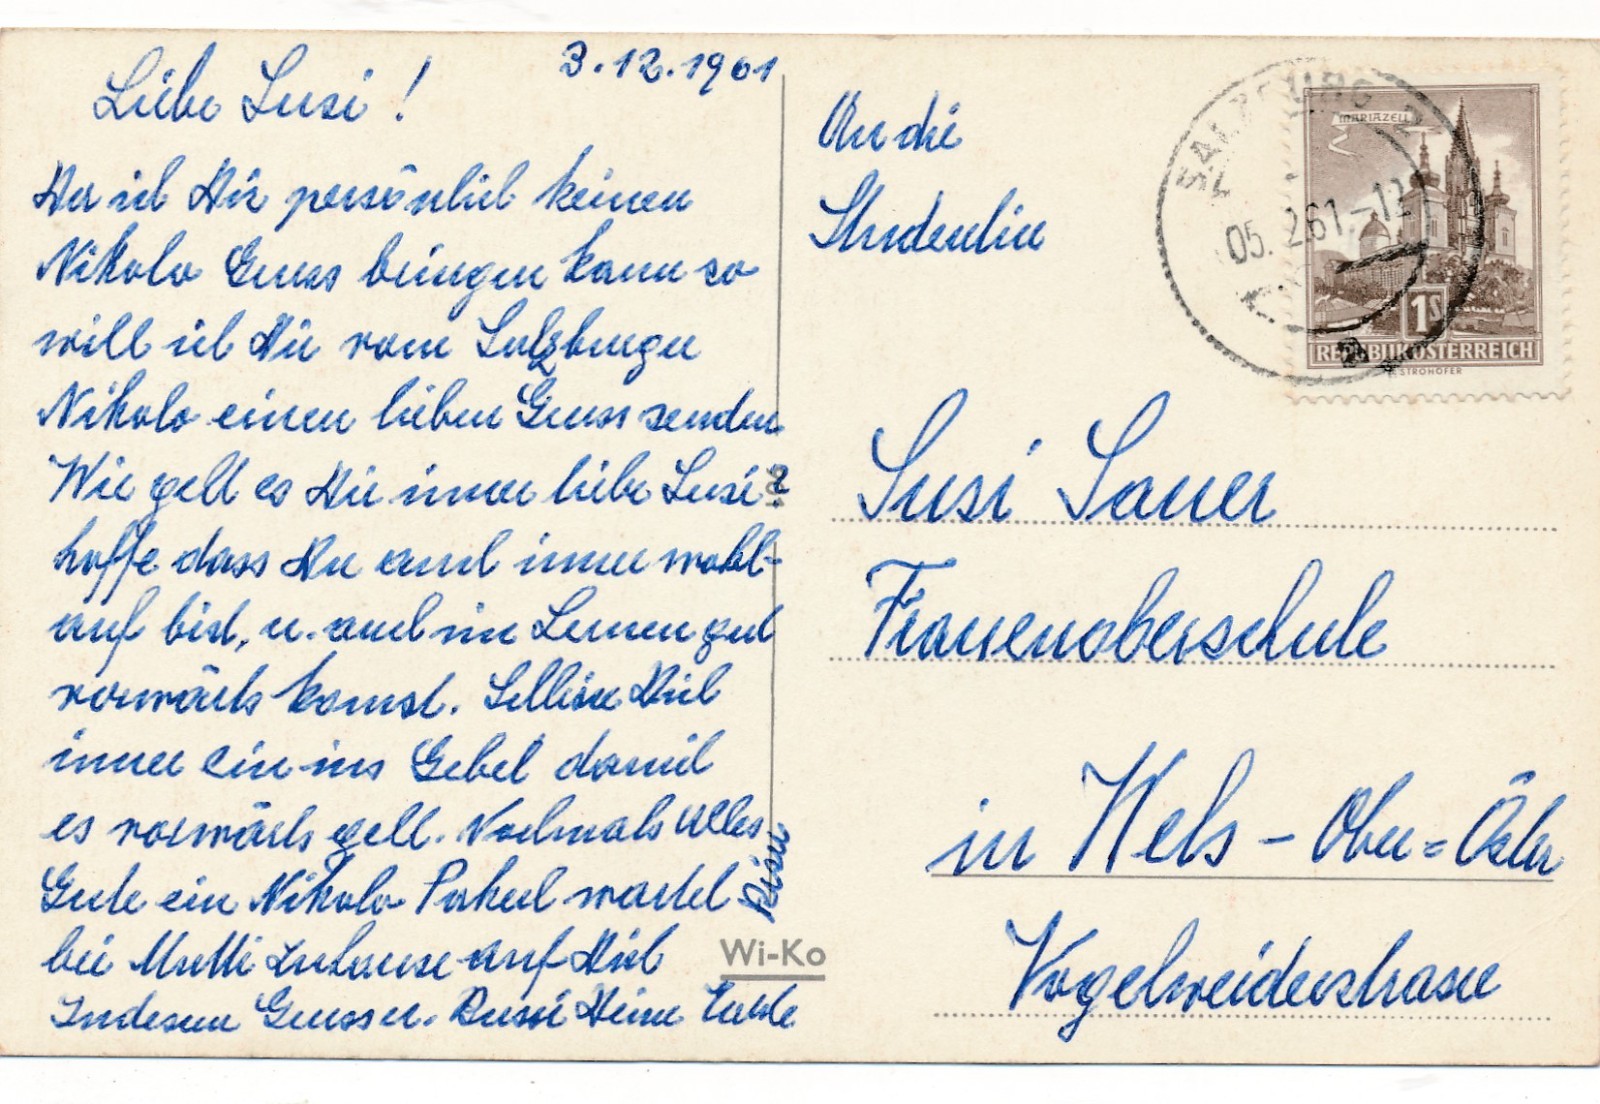 3.12.1961
Liebe Susi!
Da ich Dir persönlich keinen
Nikolo Gruss bringen kann so
will ich Dir vom Salzburger
Nikolo einen lieben Gruss senden
Wie geht es Dir immer liebe Susi?
hoffe dass Du auch immer wohl-
auf bist, u. auch im Lernen gut
vorwärts komst. Schliese Dich
immer ein ins Gebet damit
es vorwärts geht. Nochmals alles
Gute ein Nikolo Packerl wartet
bei Mutti zuhause auf Dich
Indesen Grusse u. Bussi Deine
Wi-Ko
An die
Studentin
Susi Sauer
Frauenoberschule
in Wels - Ober=Östr
Vogelweiderstrasse
SALZBURG 2
05. 2.61-12
MARIAZELL
1S
REPUBLIK ÖSTERREICH
STROHOFER